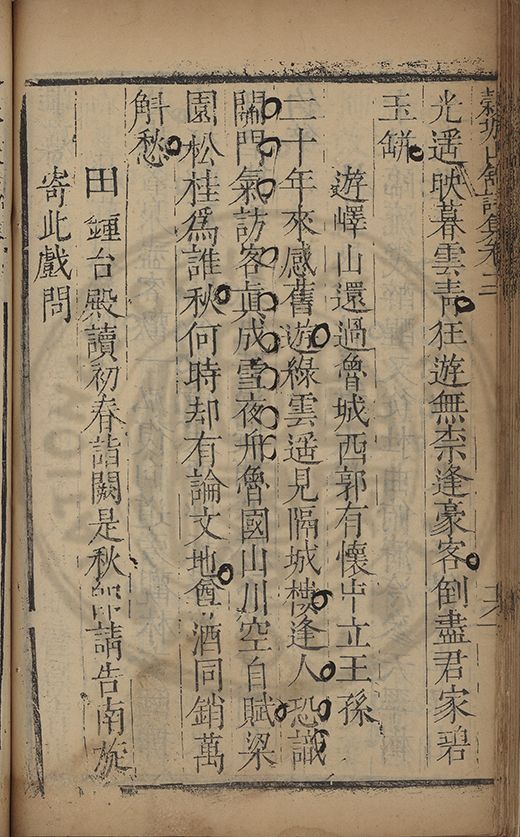 穀城山館詩集卷
光遥暎暮雲青狂遊無柰逢豪客倒盡君家碧
玉缾
遊嶧山還過魯城西郭有懷中立王孫
二十年來感舊遊綠雲遥見隔城樓逢人恐識
關門氣訪客眞成雪夜舟魯國山川空自賦梁
園松桂爲誰秋何時却有論文地尊酒同銷萬
斛愁
田鍾台殿讀初春詣闕是秋即請告南旋
寄此戲問